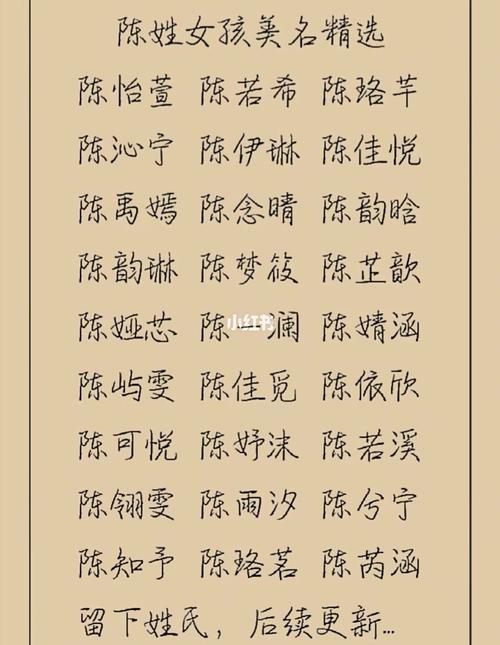 陈姓女孩美名精选
陈怡萱 陈若希 陈珞芊
陈沁宁 陈伊琳 陈佳悦
陈禹嫣 陈念晴 陈韵晗
陈韵琳 陈梦筱 陈芷歆
陈娅芯 陈一澜 陈婧涵
小红书
陈屿雯 陈佳觅 陈依欣
陈可悦 陈妤沫 陈若溪
陈翎雯 陈雨汐 陈兮宁
陈知予 陈珞茗 陈芮涵
留下姓氏，后续更新...